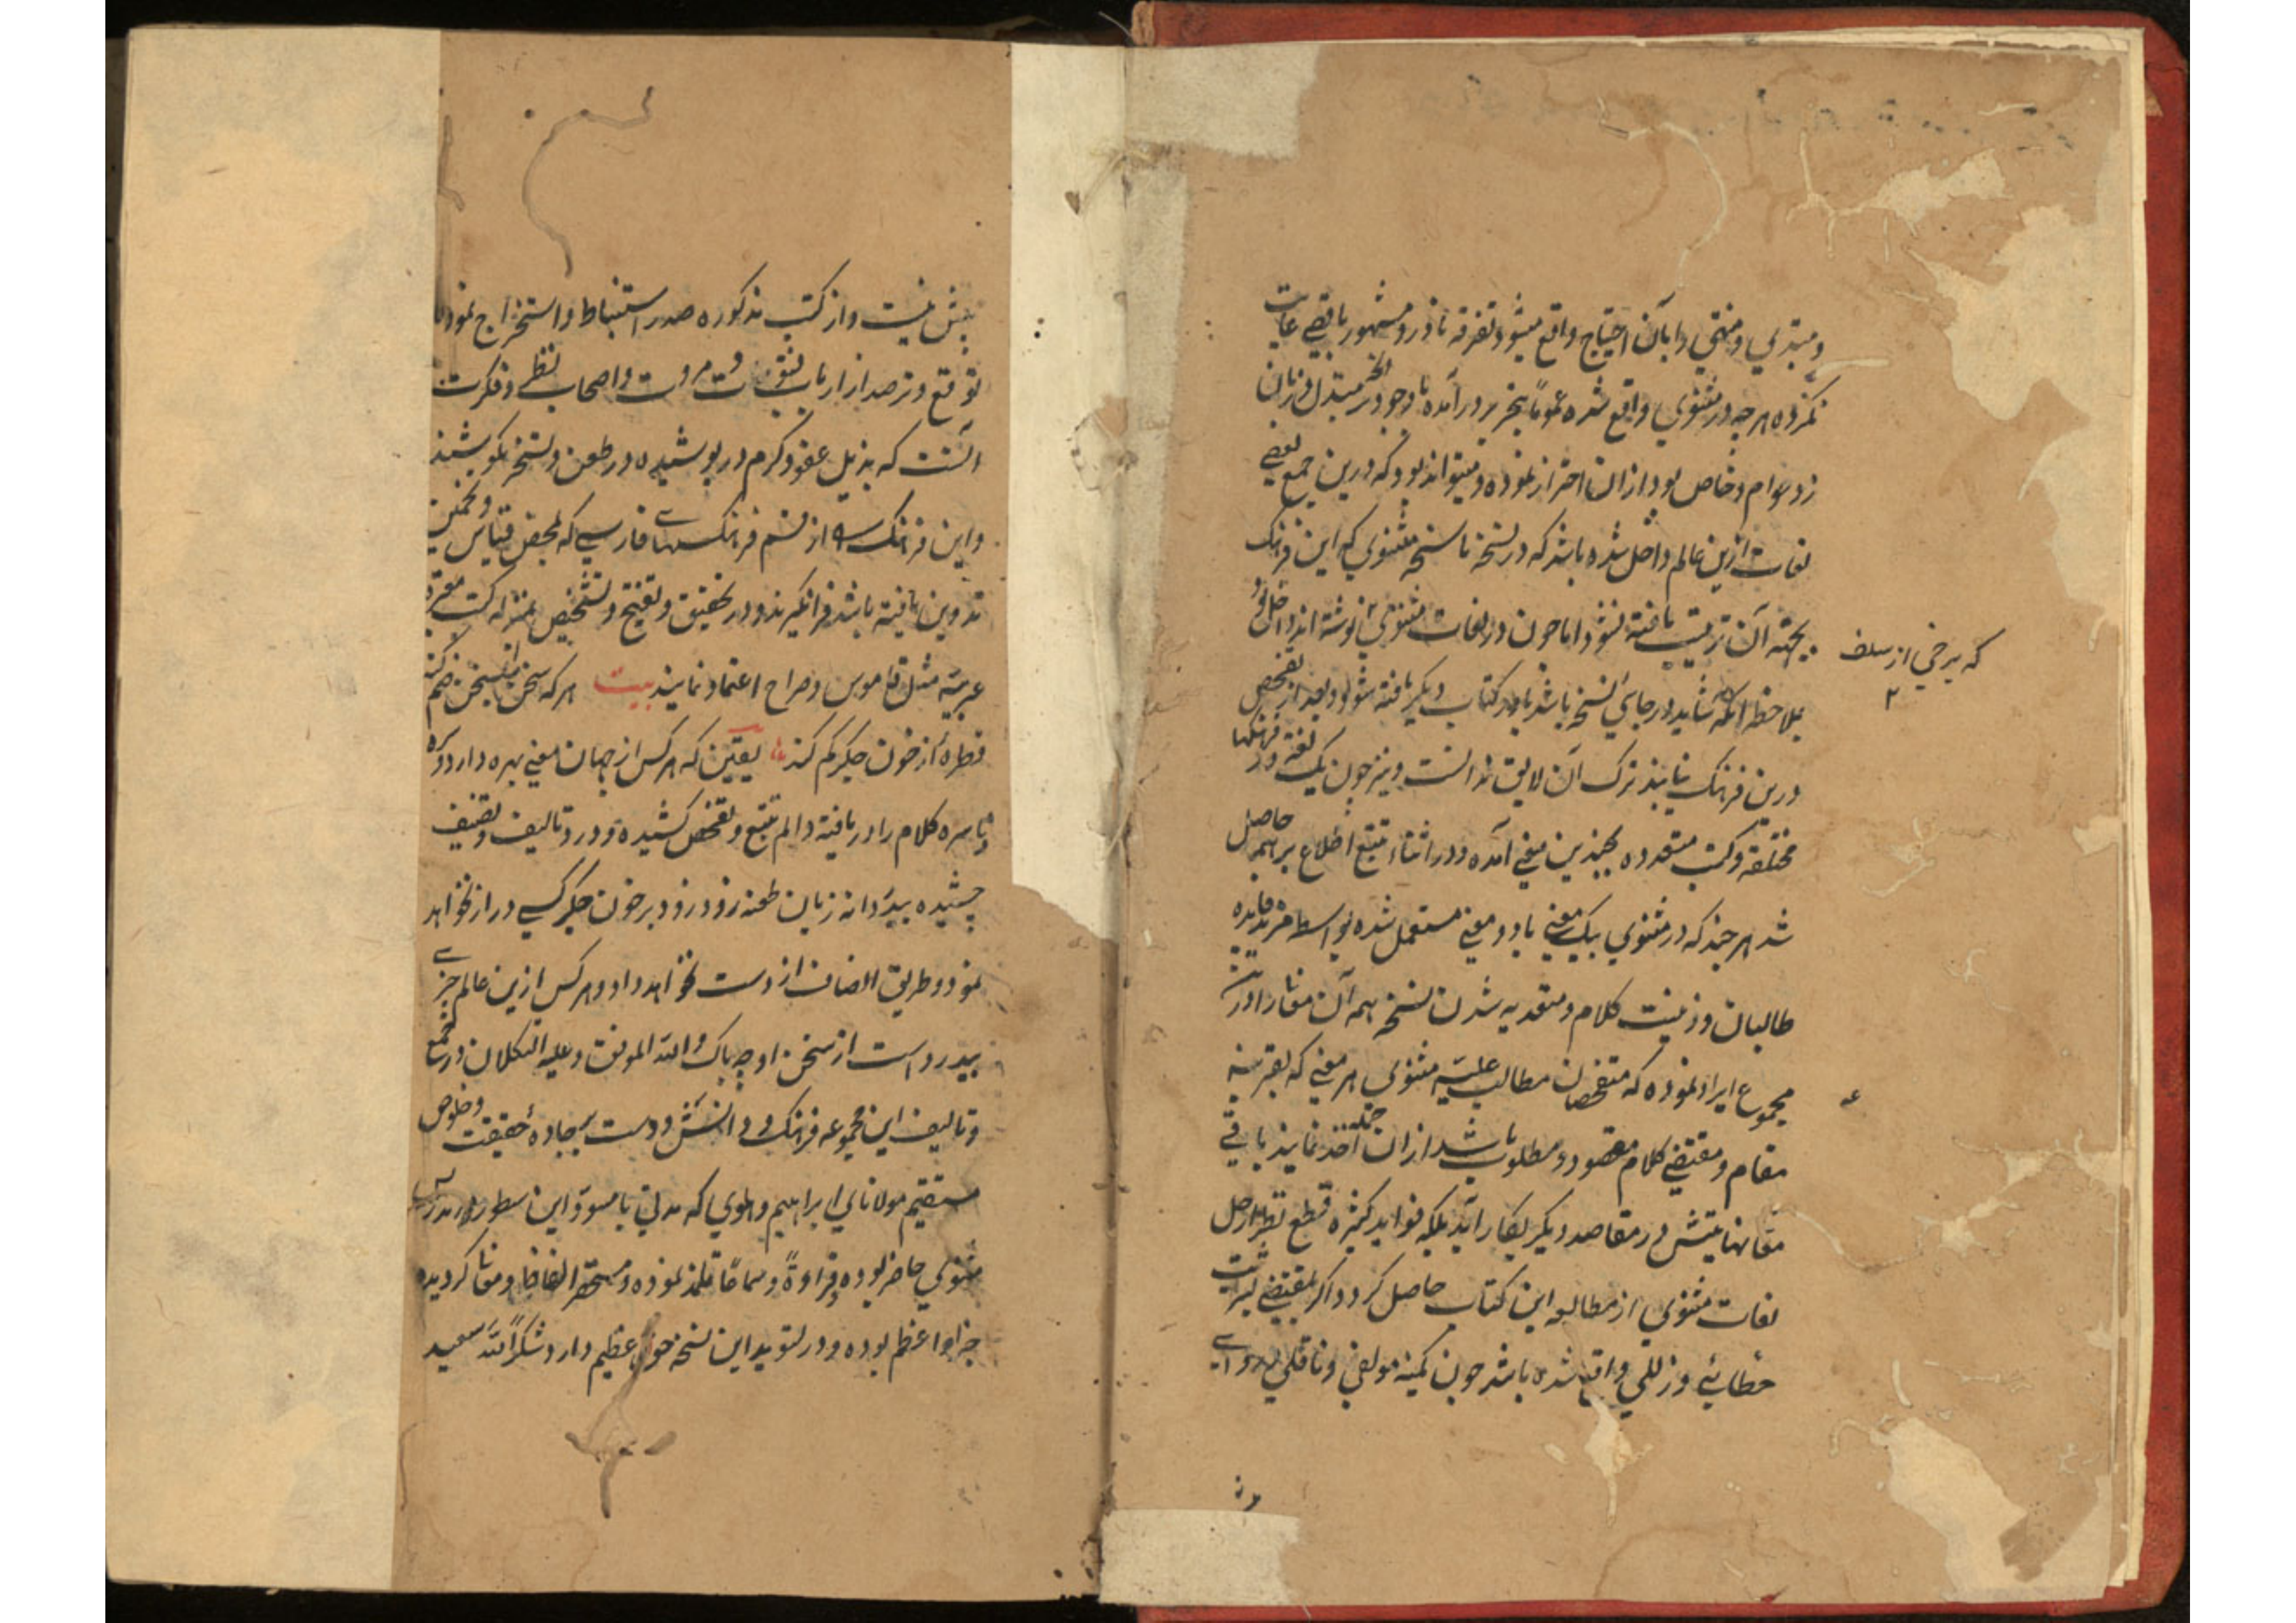 و مبتدی و منتهی را بآن احتیاج واقع میشود تفرقه نادر و مشهور باقصی غایت
نکرده هرچه در مثنوی واقع شده عموماً بتحریر درآمده باوجود آنچه مبتذل زبان
زد عوام و خاص بود ازان احتراز نموده و میتواند بود که درین جمع بعضی
لغات ازین عالم داخل شده باشد که در نسخه ناسخه مثنوی که این فرهنگ
بجهته آن ترتیب یافته نشود اما چون در لغات مثنوی نوشته اند داخل نمود
که برخی از سلف
بملاحظه آنکه شاید در جای نسخه باشد یا در کتاب دیگر یافته شود و بعد از تفحص
درین فرهنگ نیابند ترک آن لایق ندانست و نیز چون یک لغة در فرهنگها
مختلفه و کتب متعدده بچندین معنی آمده و در اثناء تتبع اطلاع بر همه حاصل
شد هرچند که در مثنوی بیک معنی یا دو معنی مستعمل شده بواسطه مزید فایده
طالبان و زینت کلام و متعدیه شدن نسخه همه آن معانی را درین
مجموع ایراد نموده که متفحصان مطالب علیّه مثنوی هر معنی که بقرینه
مقام و مقتضی کلام مقصود و مطلوب باشد ازان جمله اخذ نمایند باقی
معانیهایش در مقاصد دیگر بکار آید بلکه فواید کثیره قطع نظر از حل
لغات مثنوی از مطالعه این کتاب حاصل کردد اکر بمقتضی بشریت
خطائی و زللی واقع شده باشد چون کمینه مولفی و ناقلی
بیش نیست و از کتب مذکوره صدر استنباط و استخراج نموده
توقع و ترصد از ارباب فتوت و مروت و اصحاب نظر و فکرت
آنست که بذیل عفو و کرم در پوشیده در طعن و تسخر نکوشند
و این فرهنگ را از قسم فرهنگهای فارسی که بمحض قیاس و تخمین
تدوین یافته باشد فرانگیرند و در تحقیق و تنقیح و تشخیص بمنزله کتب معتبره
عربیّه مثل قاموس و صراح اعتماد نمایند بیت هر که سخن را بسخن ضم کند
قطره از خون جکر کم کند یقین که هر کس از جهان معنی بهره دارد و راه
و ناسره کلام را دریافته و الم تتبع و تفحص کشیده و درد تالیف و تصنیف
چشیده بیدردانه زبان طعنه زود زود بر خون جکر کسی دراز نخواهد
نمود و طریق انصاف از دست نخواهد داد و هر کس ازین عالم بی خبر
بیدرد است از سخن او چه باک والله الموفق و علیه التکلان در جمع
و تالیف این مجموعه فرهنگ و دانش دوست بر جاده حقیقت و خلوص
مستقیم مولانای ابراهیم دهلوی که مدتی با مسوّد این سطور در تدریس
مثنوی حاضر بوده و قراءةً و سماعاً تلمذ نموده و مستحضر الفاظ و معانی کردیده
جزاء اعظم بوده و در تسوید این نسخه حق عظیم دارد شکراً لله سعیه